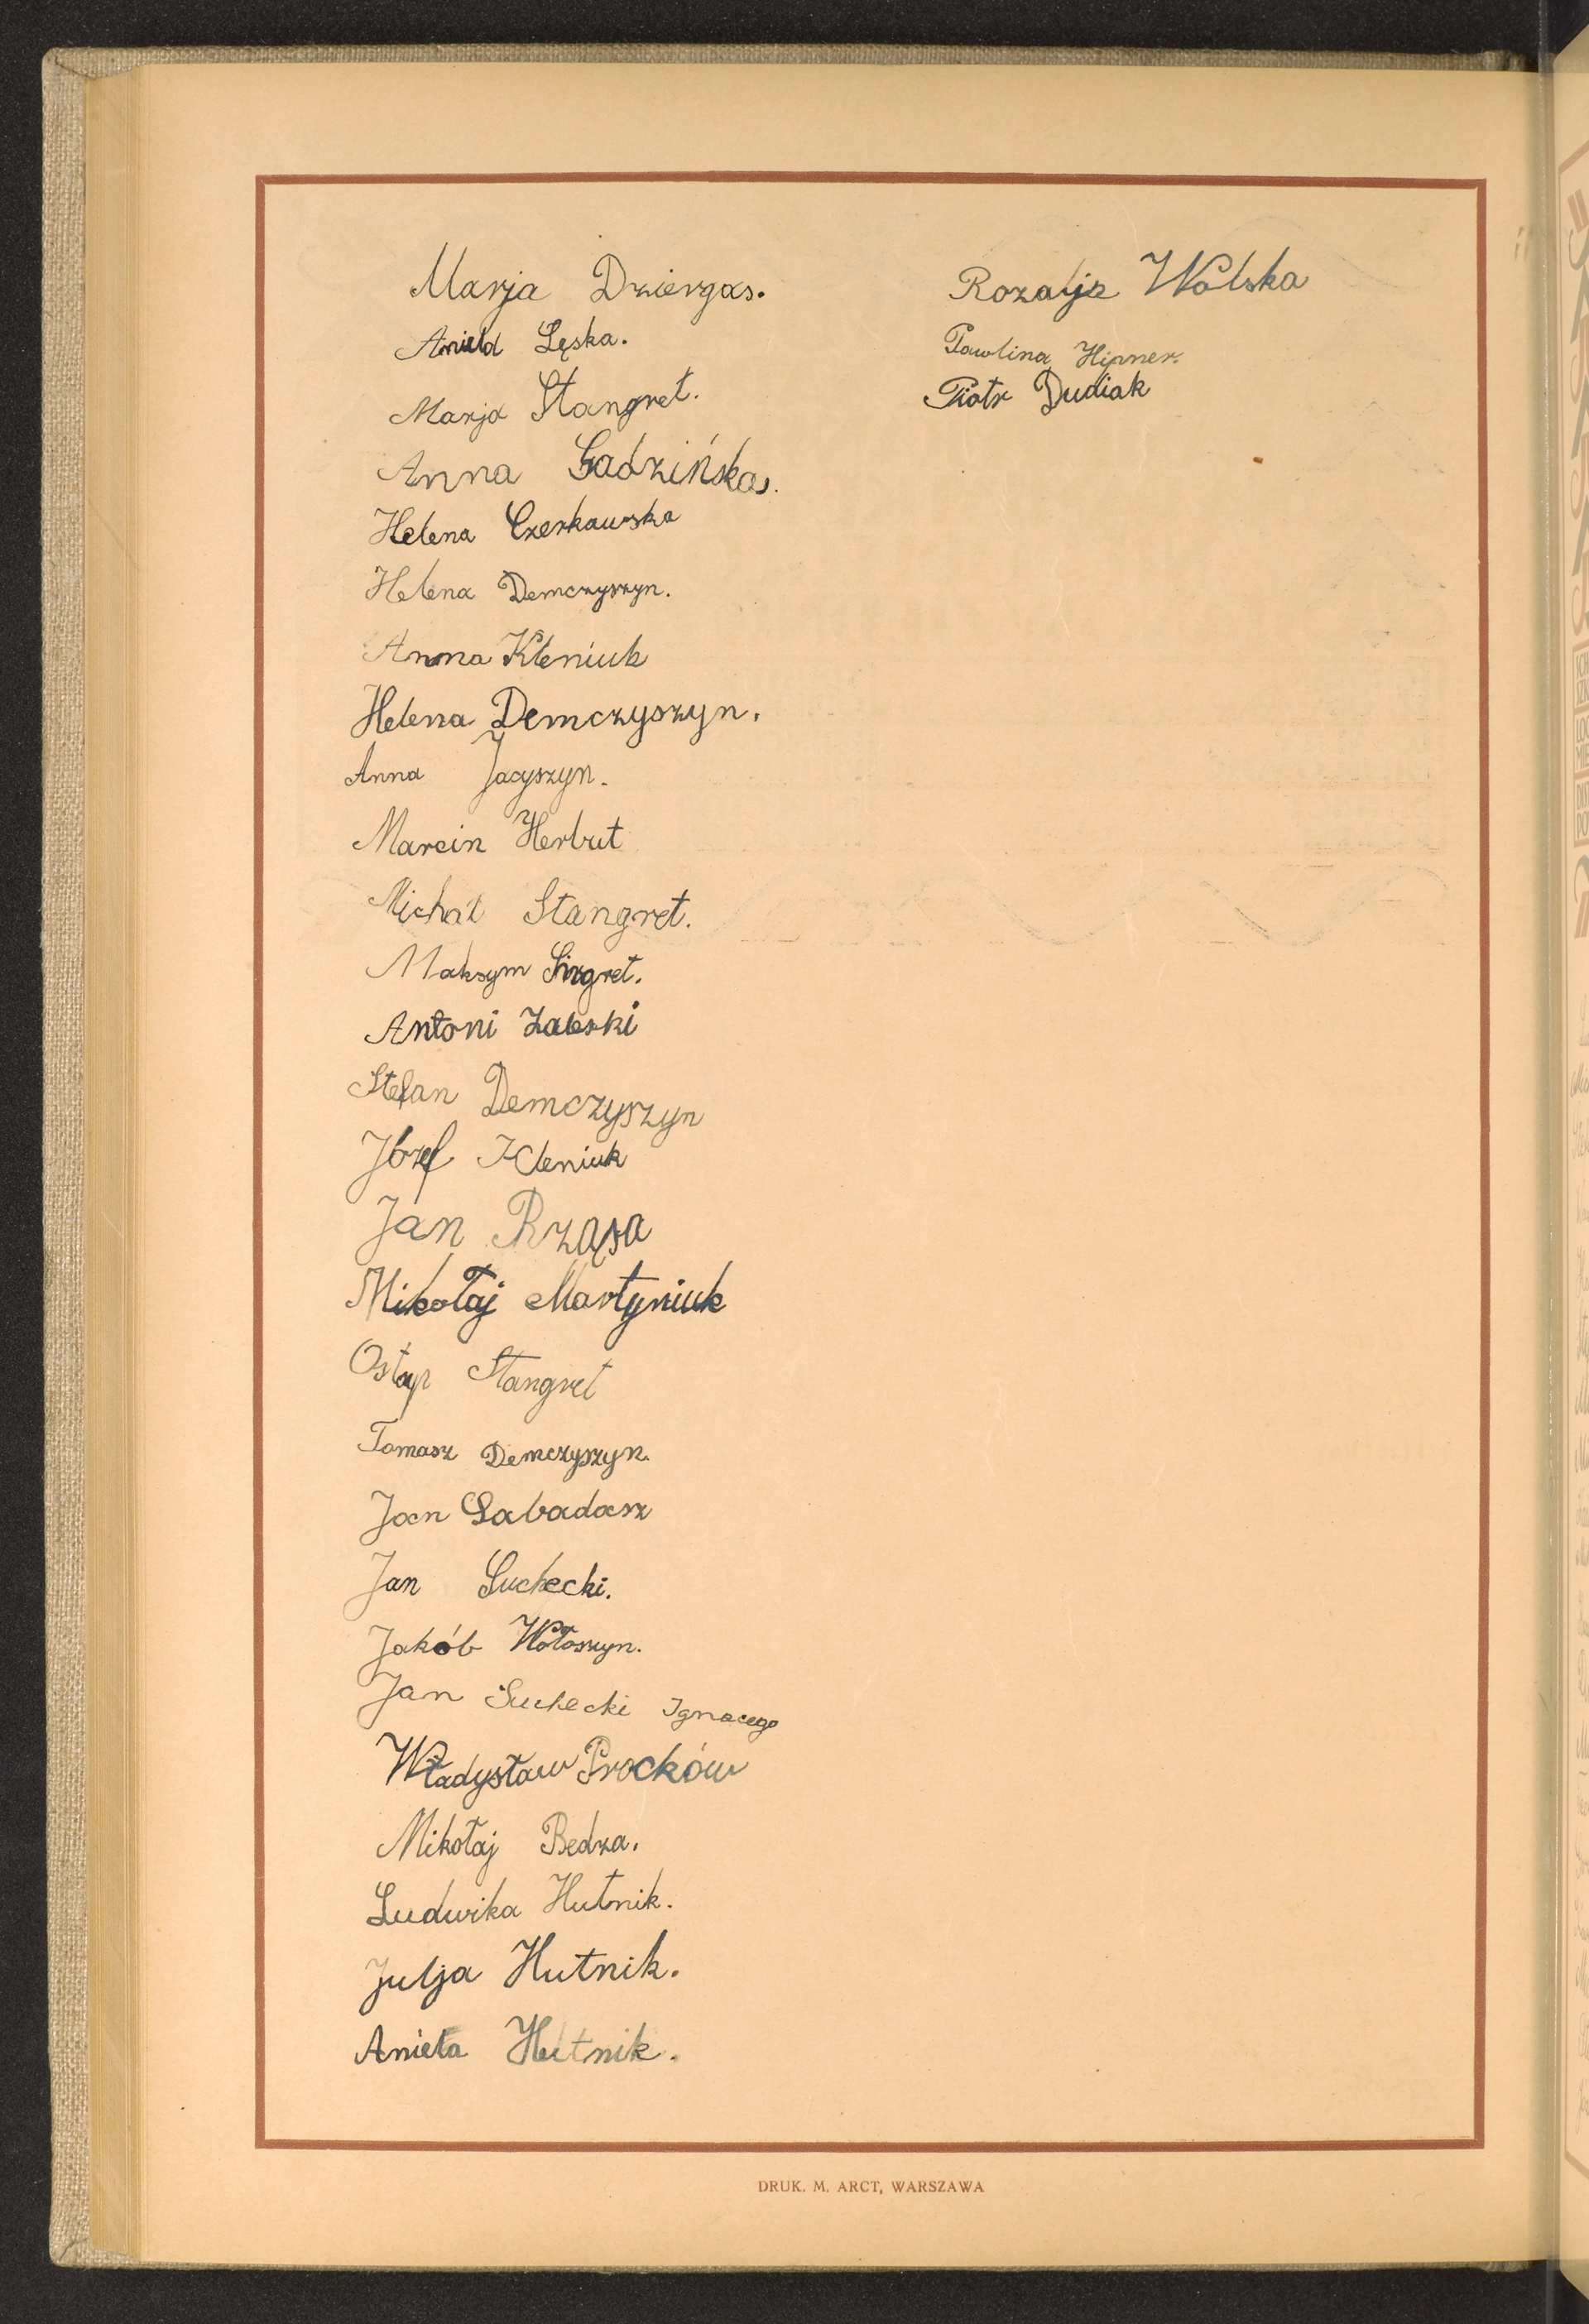 Marja Dziergas.
Aniela Lęska.
Marja Stangret.
Anna Gadzińska.
Helena Czerkawska
Helena Demczyszyn.
Anna Kleniuk
Helena Demczyszyn.
Anna Jacyszyn.
Marcin Herbut
Michał Stangret.
Maksym
Antoni Zaleski
Stefan Demczyszyn
Józef Kleniuk
Jan Rząsa
Mikołaj Martyniuk
Ostap Stangret
Tomasz Demczyszyn.
Jan Labadasz
Jan Suchecki.
Jakób Wołoszyn.
Jan Suchecki Ignacego
Władysław Procków
Mikołaj Bedza.
Ludwika Hutnik.
Julja Hutnik.
Anieła Hutnik.
Rozalja Wolska
Pawlina Hipner.
Piotr Dudiak
DRUK. M. ARCT, WARSZAWA